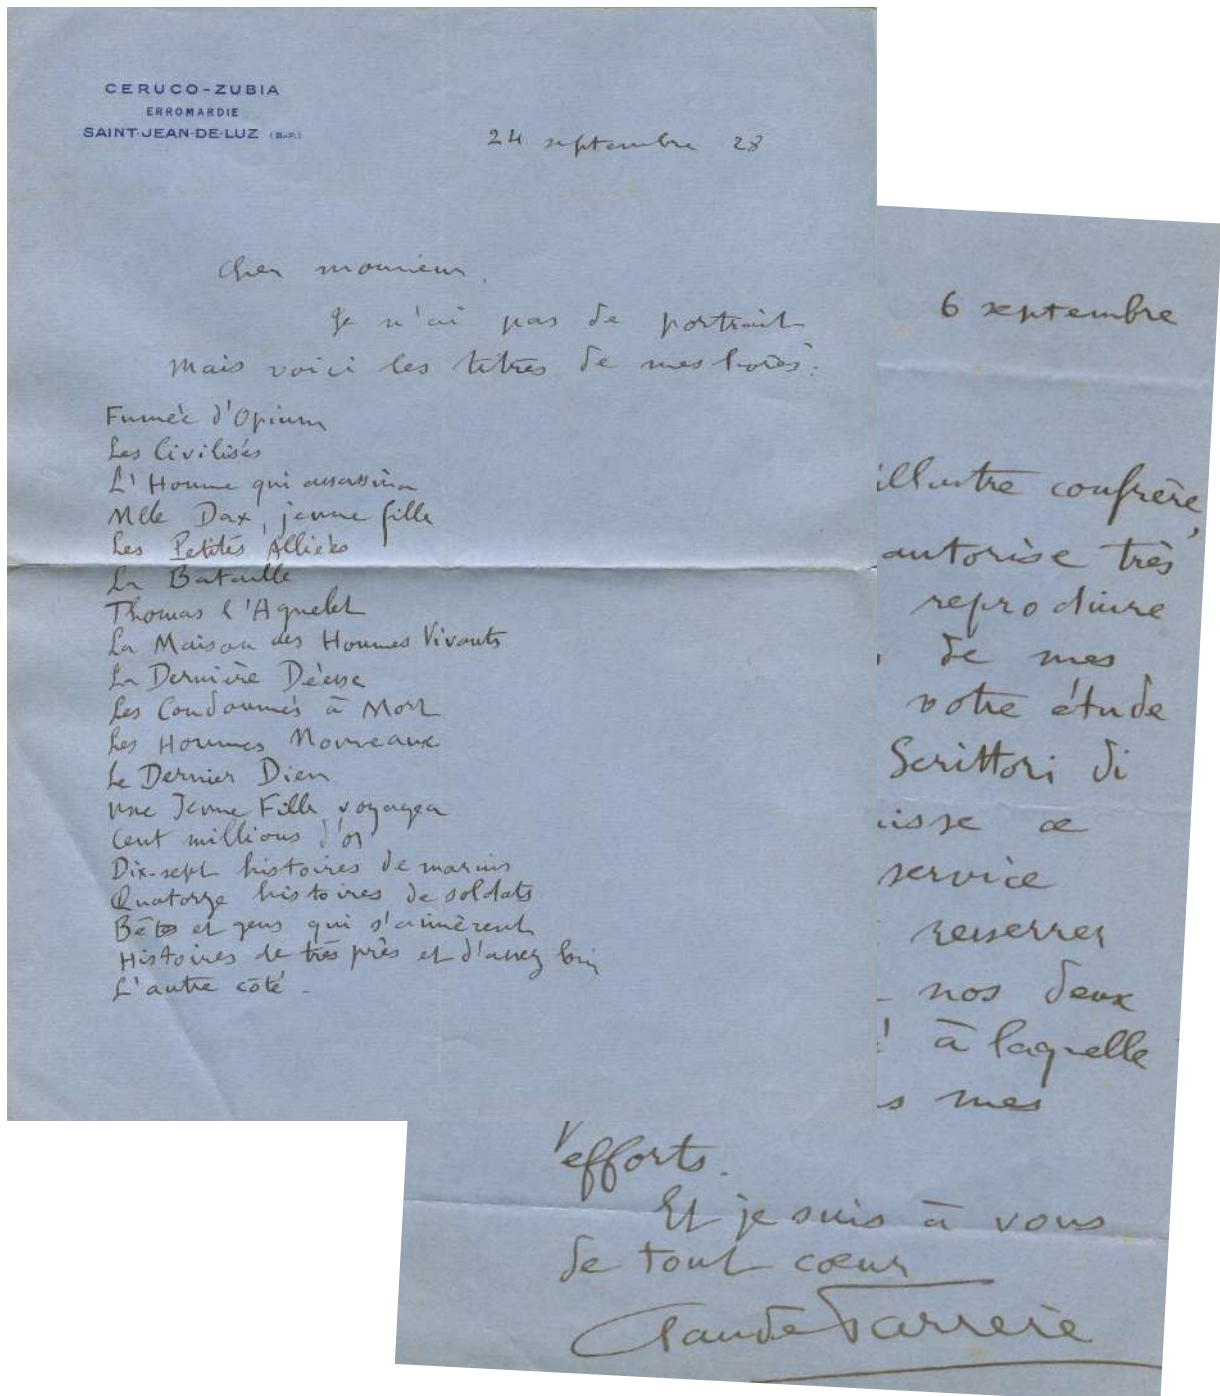 CERUCO-ZUBIA
ERROMARDIE
SAINT-JEAN-DE-LUZ (B.-P.)
24 septembre 28
Cher monsieur,
je n'ai pas de portrait
mais voici les titres de mes livres:
Fumée d'Opium
Les Civilisés
L'Homme qui assassina
Mlle Dax, jeune fille
Les Petites Alliées
La Bataille
Thomas l'Agnelet
La Maison des Hommes Vivants
La Dernière Déesse
Les Condamnés à Mort
Les Hommes Nouveaux
Le Dernier Dieu
Une Jeune Fille voyagea
Cent millions d'or
Dix-sept histoires de marins
Quatorze histoires de soldats
Bêtes et gens qui s'aimèrent
Histoires de très près et d'assez loin
L'autre côté.
6 septembre
illustre confrère,
autorise très
reproduire
de mes
votre étude
Scrittori di
isse ce
service
resserrer
nos deux
à laquelle
s mes
efforts.
Et je suis à vous
de tout cœur
Claude Farrère